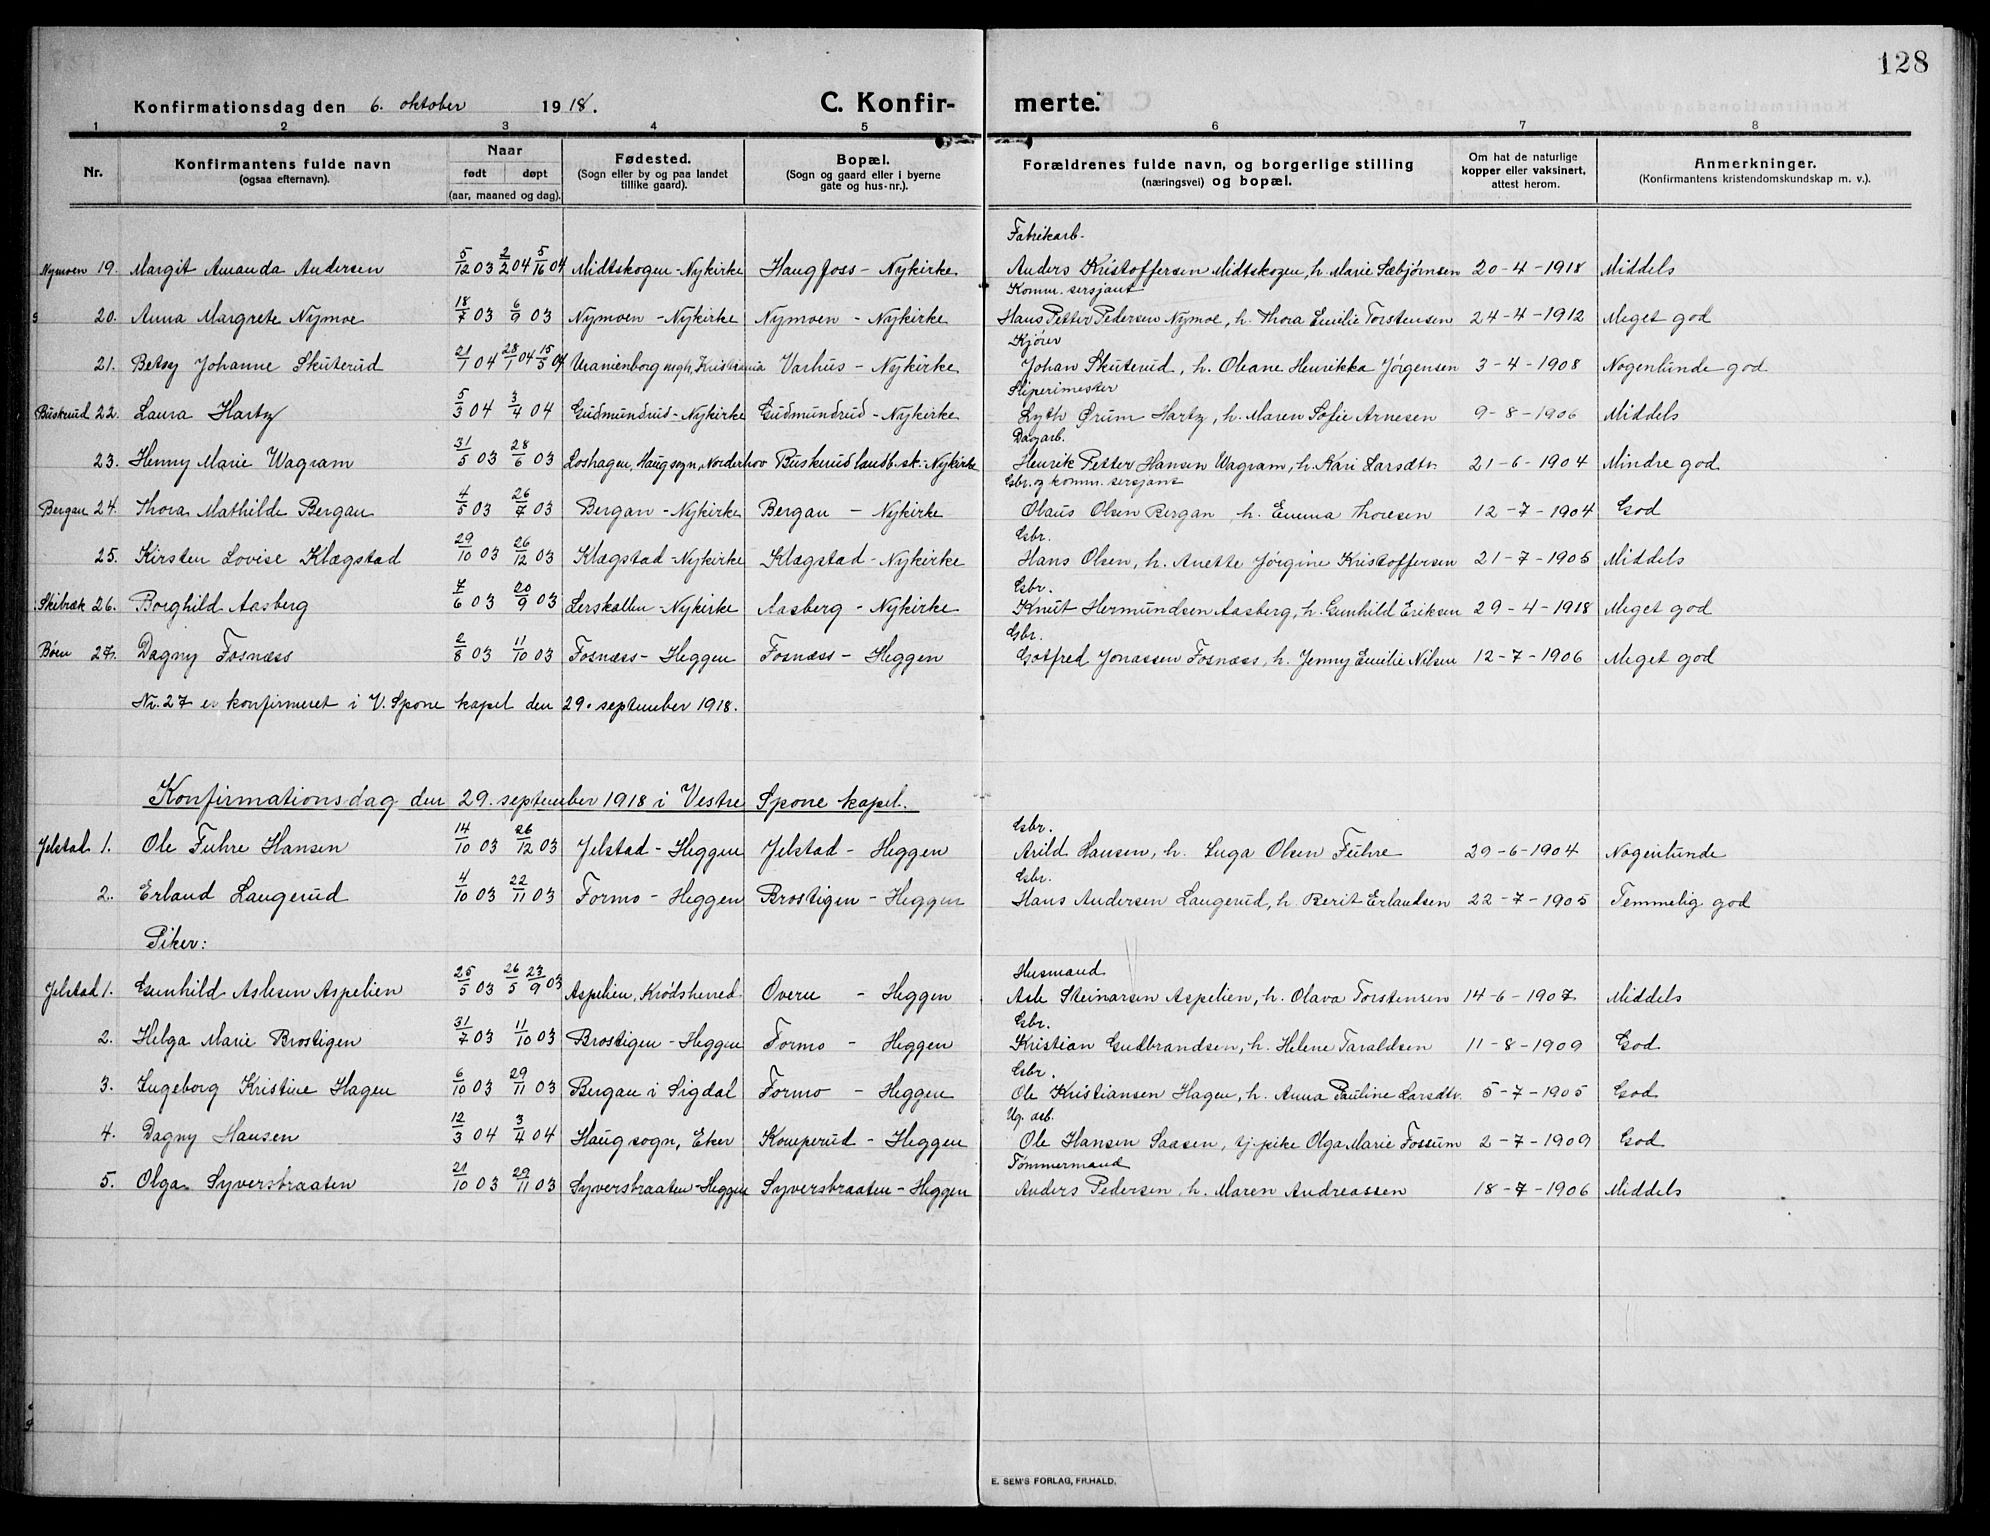 128
Konfirmationsdag den 6. oktober 1918.
C. Konfir- merte.
1 2 3 4 5 6 7 8
Nr. Konfirmantens fulde navn (ogsaa efternavn). Naar født døpt (aar, maaned og dag). Fødested. (Sogn eller by og paa landet tillike gaard). Bopæl. (Sogn og gaard eller i byerne gate og hus-nr.). Forældrenes fulde navn, og borgerlige stilling (næringsvei) og bopæl. Om hat de naturlige kopper eller vaksinert, attest herom. Anmerkninger. (Konfirmantens kristendomskundskap m. v.).
Fabrikarb.
Nymoen 19. Margit Amanda Andersen 5/12 03 2/2 04 5/16 04 Midtskogen - Nykirke Haugfoss - Nykirke Anders Kristoffersen Midtskogen, h. Marie Sæbjørnsen 20-4-1918 Middels
Komm. sersjant
s 20. Anna Margrete Nymoe 18/7 03 6/9 03 Nymoen - Nykirke Nymoen - Nykirke Hans Petter Pedersen Nymoe, h. Thora Emilie Torstensen 24-4-1912 Meget god
Kjører
21. Betsy Johanne Skuterud 21/1 04 28/1 04 15/5 04 Uranienborg mgh, Kristiania Varhus - Nykirke Johan Skuterud, h. Oleane Henrikka Jørgensen 3-4-1908 Nogenlunde god
Sliperimester
Buskrud 22. Laura Hartz 5/3 04 3/4 04 Gudmundrud - Nykirke Gudmundrud - Nykirke Lyth Ørum Hartz, h. Maren Sofie Arnesen 9-8-1906 Middels
Dagarb.
23. Henny Marie Wagram 31/5 03 28/6 03 Loshagen, Haug sogn, Norderhov Buskerud landb.sk. - Nykirke Henrik Petter Hansen Wagram, h. Kari Larsdtr. 21-6-1904 Mindre god
Gbr. og komm. sersjant
Bergan 24. Thora Mathilde Bergan 4/5 03 26/7 03 Bergan - Nykirke Bergan - Nykirke Olaus Olsen Bergan, h. Emma Thoresen 12-7-1904 God
Gbr.
25. Kirsten Lovise Klægstad 29/10 03 26/12 03 Klægstad - Nykirke Klægstad - Nykirke Hans Olsen, h. Anette Jørgine Kristoffersen 21-7-1905 Middels
Gbr.
Skibræk 26. Borghild Aasberg 7/6 03 20/9 03 Lerskallen - Nykirke Aasberg - Nykirke Knut Hermundsen Aasberg, h. Gunhild Eriksen 29-4-1918 Meget god
Gbr.
Bøen 27. Dagny Fosnæss 2/8 03 11/10 03 Fosnæss - Heggen Fosnæss - Heggen Gotfred Jonassen Fosnæss, h. Jenny Emilie Nilsen 12-7-1906 Meget god
Nr. 27 er konfirmeret i V. Spone kapel den 29. september 1918.
Konfirmationsdag den 29. september 1918 i Vestre Spone kapel.
Gbr.
Jelstad 1. Ole Fuhre Hansen 14/10 03 26/12 03 Jelstad - Heggen Jelstad - Heggen Arild Hansen, h. Inga Olsen Fuhre 29-6-1904 Nogenlunde
Gbr.
2. Erland Laugerud 4/10 03 22/11 03 Formo - Heggen Brostigen - Heggen Hans Andersen Laugerud, h. Berit Erlandsen 22-7-1905 Temmelig god
Piker:
Husmand
Jelstad 1. Gunhild Aslesen Aspelien 25/5 03 26/5 23/9 03 Aspelien, Krødsherred Overn - Heggen Asle Steinarsen Aspelien, h. Olava Torstensen 14-6-1907 Middels
Gbr.
2. Helga Marie Brostigen 31/7 03 11/10 03 Brostigen - Heggen Formo - Heggen Kristian Gudbrandsen, h. Helene Taraldsen 11-8-1909 God
Gbr.
3. Ingeborg Kristine Hagen 6/10 03 29/11 03 Bergan i Sigdal Formo - Heggen Ole Kristiansen Hagen, h. Anna Pauline Larsdtr. 5-7-1905 God
Ug. arb.
4. Dagny Hansen 12/3 04 3/4 04 Haug sogn, Eker Komperud - Heggen Ole Hansen Saasen, tj. pike Olga Marie Fossum 2-7-1909 God
Tømmermand
5. Olga Syverstraaten 21/10 03 29/11 03 Syverstraaten - Heggen Syverstraaten - Heggen Anders Pedersen, h. Maren Andreassen 18-7-1906 Middels
E. SEM'S FORLAG, FR.HALD.